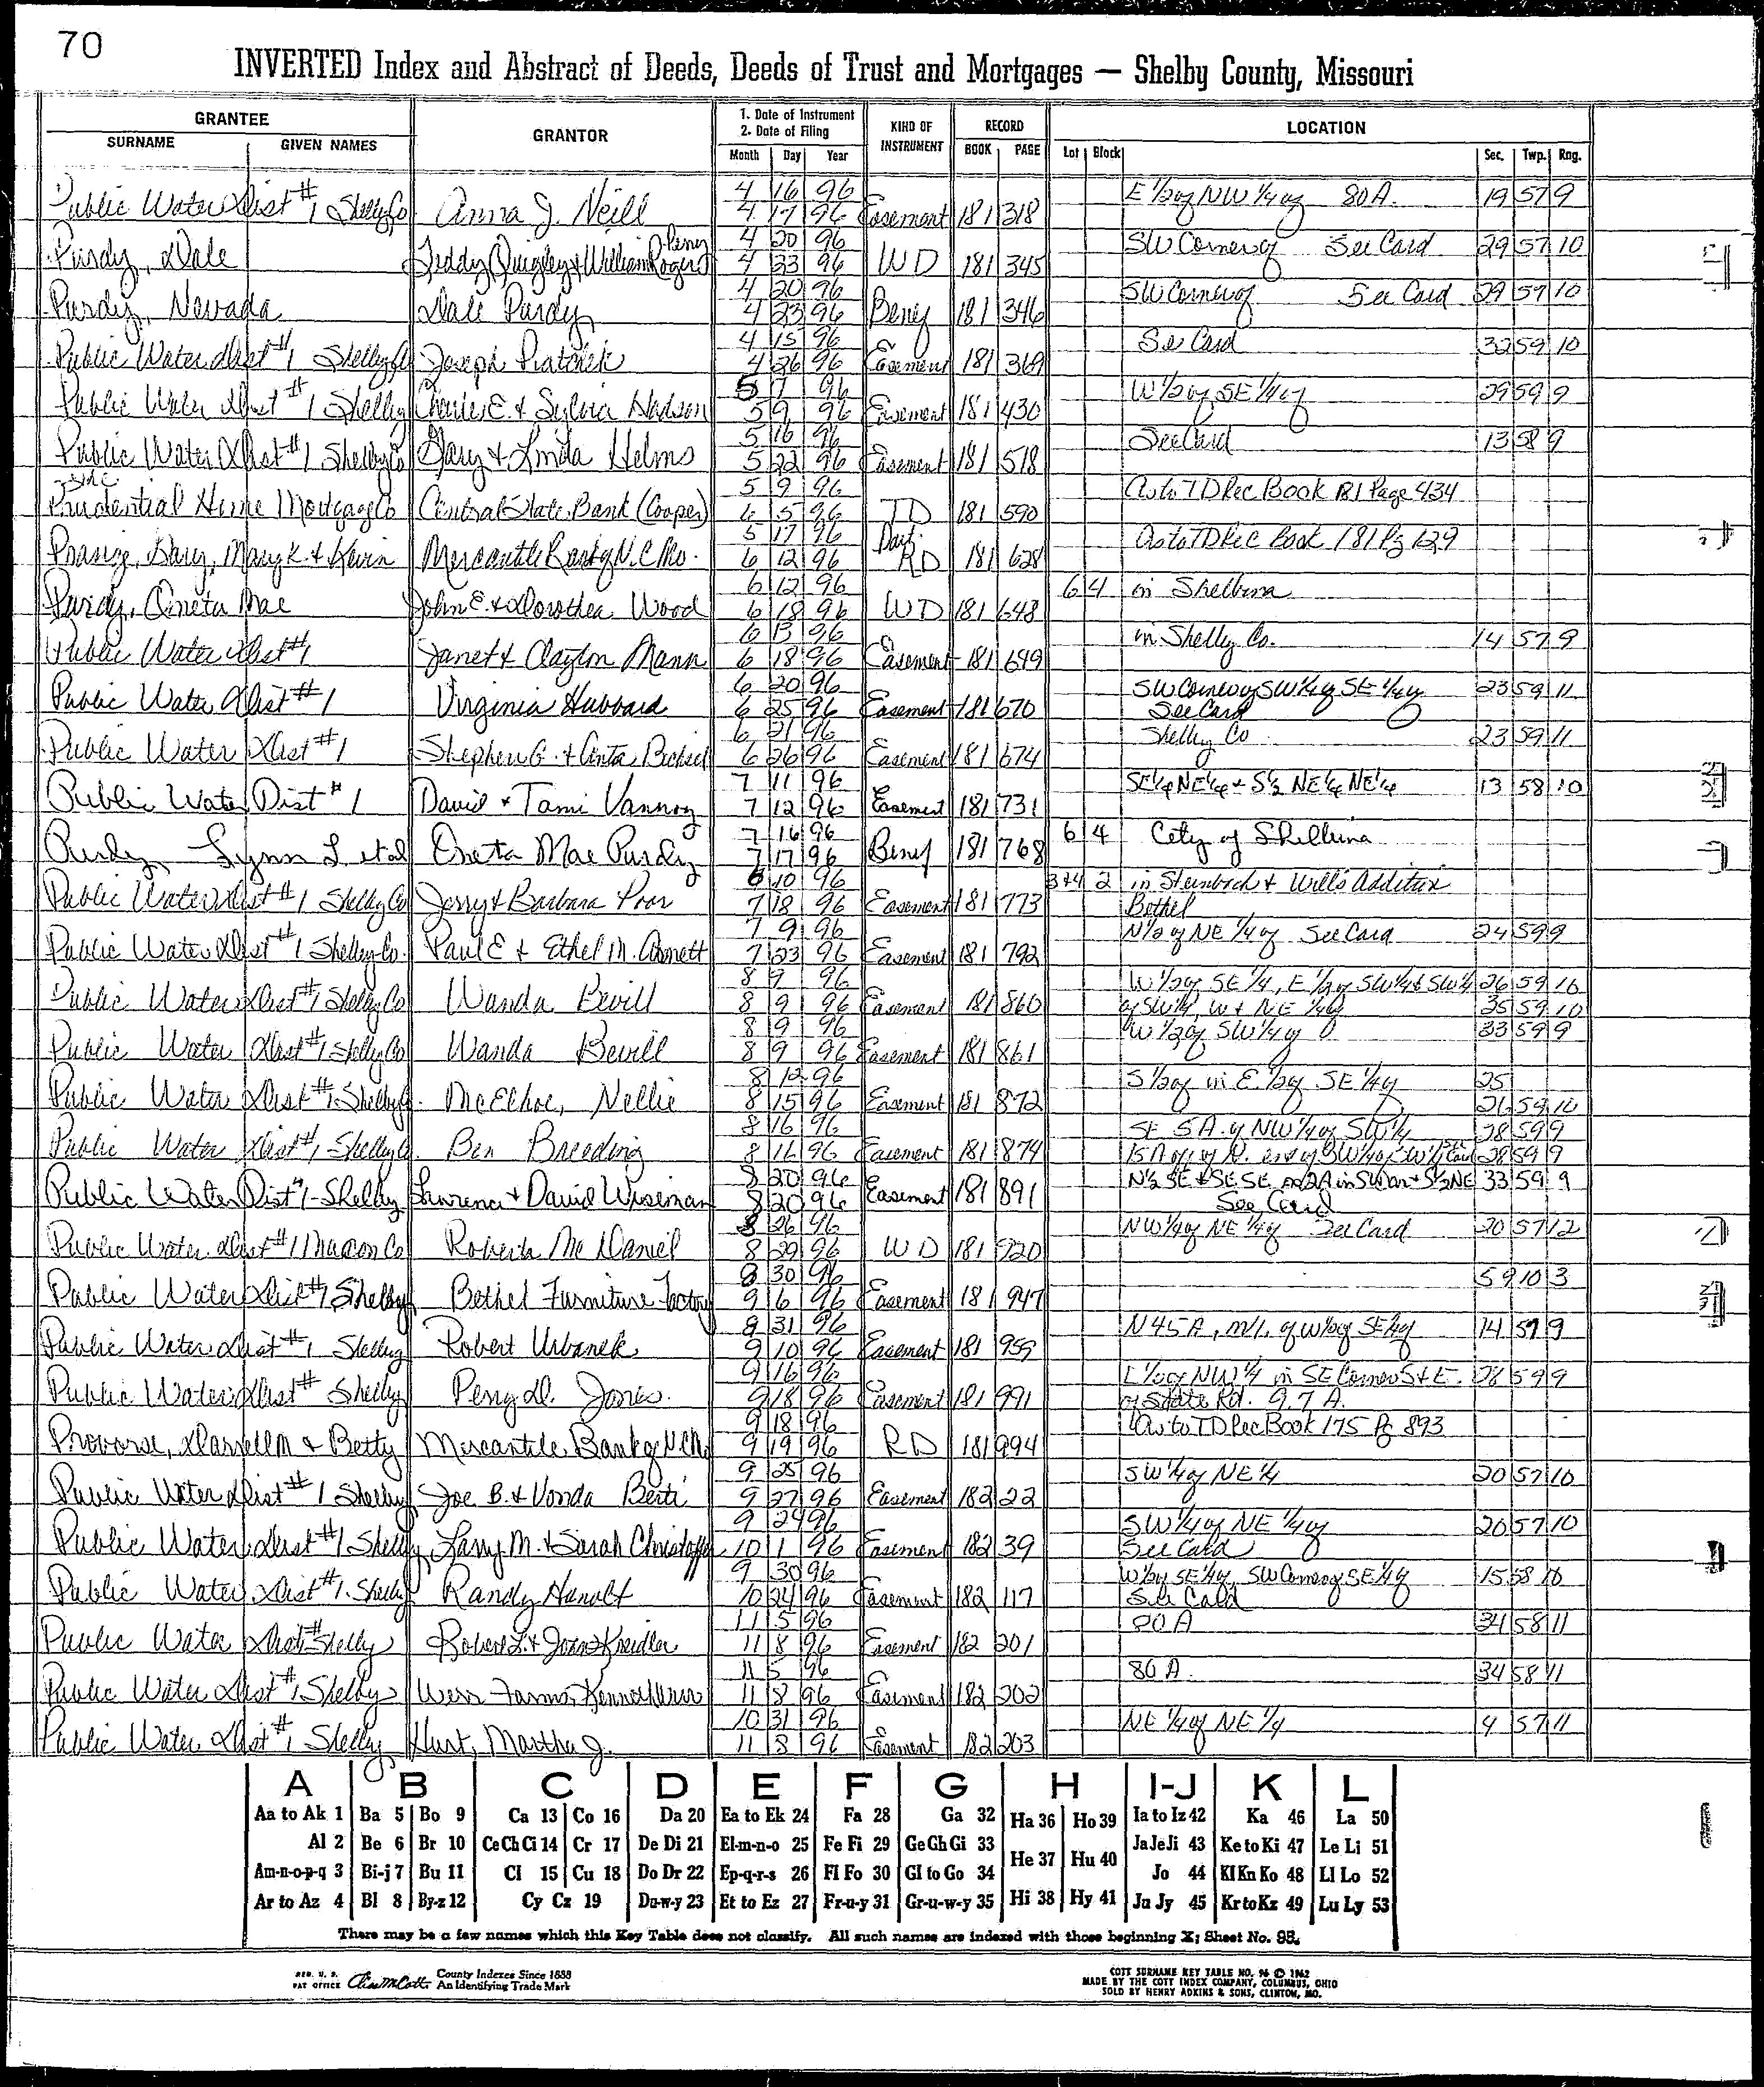 70
INVERTED Index and Abstract of Deeds, Deeds of Trust and Mortgages — Shelby County, Missouri
GRANTEE GRANTOR 1. Date of Instrument 2. Date of Filing KIND OF INSTRUMENT RECORD LOCATION
SURNAME GIVEN NAMES Month Day Year BOOK PAGE Lot Block Sec. Twp. Rng.
4 16 96 E 1/2 of NW 1/4 of 80 A. 19 57 9
Public Water Dist #1 Shelby Co Anna J. Neill 4 17 96 Easement 181 318
4 20 96 SW Corner of See Card 29 57 10
Purdy, Dale Teddy Quigley & William Perry Rogers 4 23 96 WD 181 345
4 20 96 SW Corner of See Card 29 57 10
Purdy, Nevada Dale Purdy 4 23 96 Benef 181 346
4 15 96 See Card 33 59 10
Public Water Dist #1 Shelby Co Joseph 4 26 96 Easement 181 369
5 7 96 W 1/2 of SE 1/4 of 29 59 9
Public Water Dist #1 Shelby Charles E. & Sylvia Hudson 5 9 96 Easement 181 430
5 16 96 See Card 13 58 9
Public Water Dist #1 Shelby Co Gary & Linda Helms 5 22 96 Easement 181 518
Inc. 5 9 96 As to TD Rec Book 181 Page 434
Prudential Home Mortgage Co Central State Bank (Cooper) 6 5 96 TD 181 590
5 17 96 Part. As to TD Rec Book 181 Pg 629
Gary, Mary K. & Kevin Mercantile Bank of N.C. Mo. 6 12 96 RD 181 628
6 12 96 6 4 in Shelbina
Purdy, Oneta Mae John E. & Dorothea Wood 6 18 96 WD 181 648
6 13 96 in Shelby Co. 14 57 9
Public Water Dist #1 Janet & Clayton Mann 6 18 96 Easement 181 649
6 20 96 SW Corner of SW 1/4 of SE 1/4 of 23 59 11
Public Water Dist #1 Virginia Hubbard 6 25 96 Easement 181 670 See Card
6 21 96 Shelby Co 23 59 11
Public Water Dist #1 Stephen G. & Anta 6 26 96 Easement 181 674
7 11 96 SE¼ NE¼ + S½ NE¼ NE¼ 13 58 10
Public Water Dist #1 David & Tami Vannoy 7 12 96 Easement 181 731
7 16 96 6 4 City of Shelbina
Purdy Lynn L et al Oneta Mae Purdy 7 17 96 Benef 181 768
6 10 96 3+4 2 in Steinbach & Will's Addition
Public Water Dist #1 Shelby Co Jerry & Barbara Poor 7 18 96 Easement 181 773 Bethel
7 9 96 N 1/2 of NE 1/4 of See Card 24 59 9
Public Water Dist #1 Shelby Co. Paul E & Ethel M. Arnett 7 23 96 Easement 181 792
8 9 96 W 1/2 of SE 1/4, E 1/2 of SW 1/4 & SW 1/4 26 59 10
Public Water Dist #1 Shelby Co Wanda Bevill 8 9 96 Easement 181 860 of SW 1/4, W & NE 1/4 of 35 59 10
8 9 96 W 1/2 of SW 1/4 of 33 59 9
Public Water Dist #1 Shelby Co Wanda Bevill 8 9 96 Easement 181 861
8 12 96 S 1/2 of in E. 1/2 of SE 1/4 of 25
Public Water Dist #1 Shelby Co. McElhoe, Nellie 8 15 96 Easement 181 872 26 59 10
8 16 96 SE 5 A. of NW 1/4 of SW 1/4 28 59 9
Public Water Dist #1, Shelby Co. Ben Breeding 8 16 96 Easement 181 874 15 A off of N. end of SW 1/4 of SW 1/4 See Card 28 59 9
8 20 96 N½ SE & SE SE 2A in SW Cor & S½ NE 33 59 9
Public Water Dist #1-Shelby Lawrence & David Wiseman 8 20 96 Easement 181 891 See Card
8 26 96 NW 1/4 of NE 1/4 of See Card 20 57 12
Public Water Dist #1 Macon Co Roberta McDaniel 8 29 96 WD 181 920
8 30 96 59 10 3
Public Water Dist #1 Shelby Bethel Furniture Factory 9 6 96 Easement 181 947
8 31 96 N 45 A, m/l. of W 1/2 of SE 1/4 of 14 59 9
Public Water Dist #1 Shelby Robert Urbanek 9 10 96 Easement 181 959
9 16 96 E 1/2 of NW 1/4 in SE Corner S & E. 28 59 9
Public Water Dist # Shelby Perry D. Jones. 9 18 96 Easement 181 991 of State Rd. 9.7 A.
9 18 96 As to TD Rec Book 175 Pg 893
Provorse, Darrell M & Betty Mercantile Bank of N.C. Mo 9 19 96 RD 181 994
9 25 96 SW 1/4 of NE 1/4 20 57 10
Public Water Dist #1 Shelby Joe B. & Vonda Berti 9 27 96 Easement 182 22
9 24 96 SW 1/4 of NE 1/4 of 20 57 10
Public Water Dist #1 Shelby Larry M. & Sarah 10 1 96 Easement 182 39 See Card
9 30 96 W 1/2 of SE 1/4 of, SW Corner of SE 1/4 of 15 58 10
Public Water Dist #1. Shelby Randy Hanolt 10 24 96 Easement 182 117 See Card
11 5 96 80 A 34 58 11
Public Water Dist # Shelby Robert L. & Joan Kreidler 11 8 96 Easement 182 201
11 5 96 80 A. 34 58 11
Public Water Dist #1, Shelby Farms, Kenneth 11 8 96 Easement 182 202
10 31 96 NE 1/4 of NE 1/4 4 57 11
Public Water Dist #1 Shelby Hurt, Martha J. 11 8 96 Easement 182 203
A B C D E F G H I-J K L
Aa to Ak 1 Ba 5 Bo 9 Ca 13 Co 16 Da 20 Ea to Ek 24 Fa 28 Ga 32 Ha 36 Ho 39 Ia to Iz 42 Ka 46 La 50
Al 2 Be 6 Br 10 Ce Ch Ci 14 Cr 17 De Di 21 El-m-n-o 25 Fe Fi 29 Ge Gh Gi 33 He 37 Hu 40 Ja Je Ji 43 Ke to Ki 47 Le Li 51
Am-n-o-p-q 3 Bi-j 7 Bu 11 Cl 15 Cu 18 Do Dr 22 Ep-q-r-s 26 Fl Fo 30 Gl to Go 34 Jo 44 Kl Kn Ko 48 Ll Lo 52
Ar to Az 4 Bl 8 By-z 12 Cy Cz 19 Du-w-y 23 Et to Ez 27 Fr-u-y 31 Gr-u-w-y 35 Hi 38 Hy 41 Ju Jy 45 Kr to Kz 49 Lu Ly 53
There may be a few names which this Key Table does not classify. All such names are indexed with those beginning X; Sheet No. 98.
REG. U. S. PAT OFFICE County Indexes Since 1888 An Identifying Trade Mark
COTT SURNAME KEY TABLE NO. 96 © 1962
MADE BY THE COTT INDEX COMPANY, COLUMBUS, OHIO
SOLD BY HENRY ADKINS & SONS, CLINTON, MO.